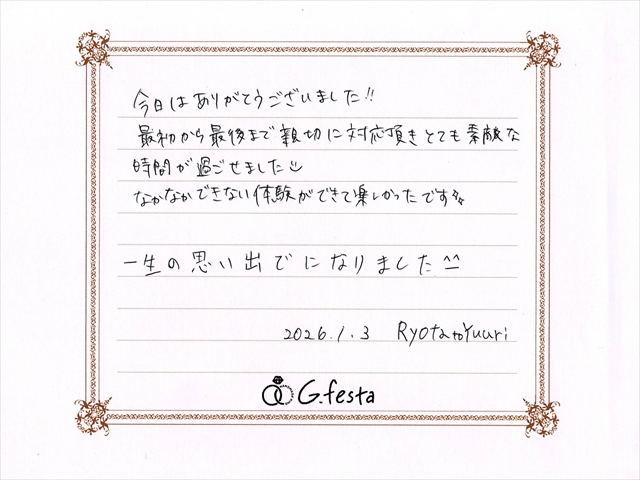 今日はありがとうございました!!
最初から最後まで親切に対応頂きとても素敵な
時間が過ごせました
なかなかできない体験ができて楽しかったです
一生の思い出でになりました^^
2026.1.3 Ryota Yuuri
G.festa